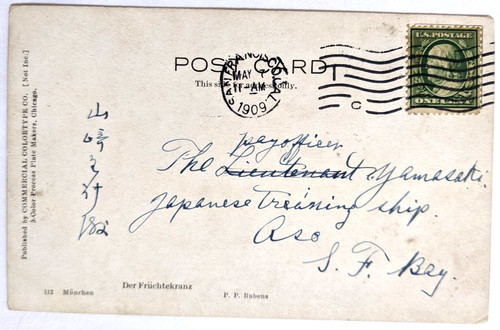 POST CARD
This side for address only.
SAN FRANCISCO
MAY 1
11-AM
1909
U.S. POSTAGE
ONE
C
山崎主計
payofficer
The Lieutenant Yamasaki.
Japanese Training ship.
Aso
S. F. Bay.
Published by COMMERCIAL COLORTYPE CO. [Not Inc.]
3-Color Process Plate Makers, Chicago.
112 München
Der Früchtekranz
P. P. Rubens